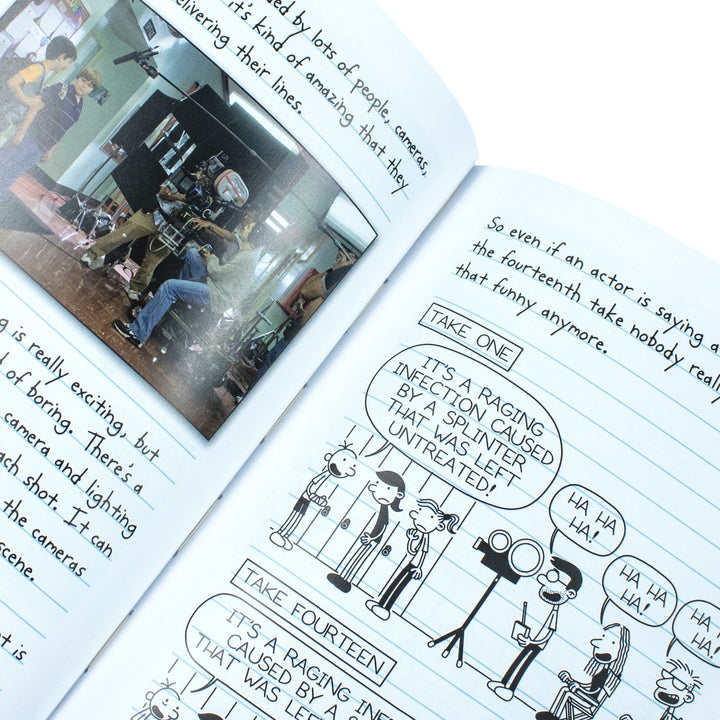 by lots of people, cameras,
it's kind of amazing that they
delivering their lines.
is really exciting, but
of boring. There's a
camera and lighting
each shot. It can
the cameras
scene.
is
So even if an actor is saying a
the fourteenth take nobody really
that funny anymore.
TAKE ONE
IT'S A RAGING
INFECTION CAUSED
BY A SPLINTER
THAT WAS LEFT
UNTREATED!
HA HA
HA!
HA HA
HA!
HA HA
HA!
TAKE FOURTEEN
IT'S A RAGING
CAUSED BY A
THAT WAS LEFT